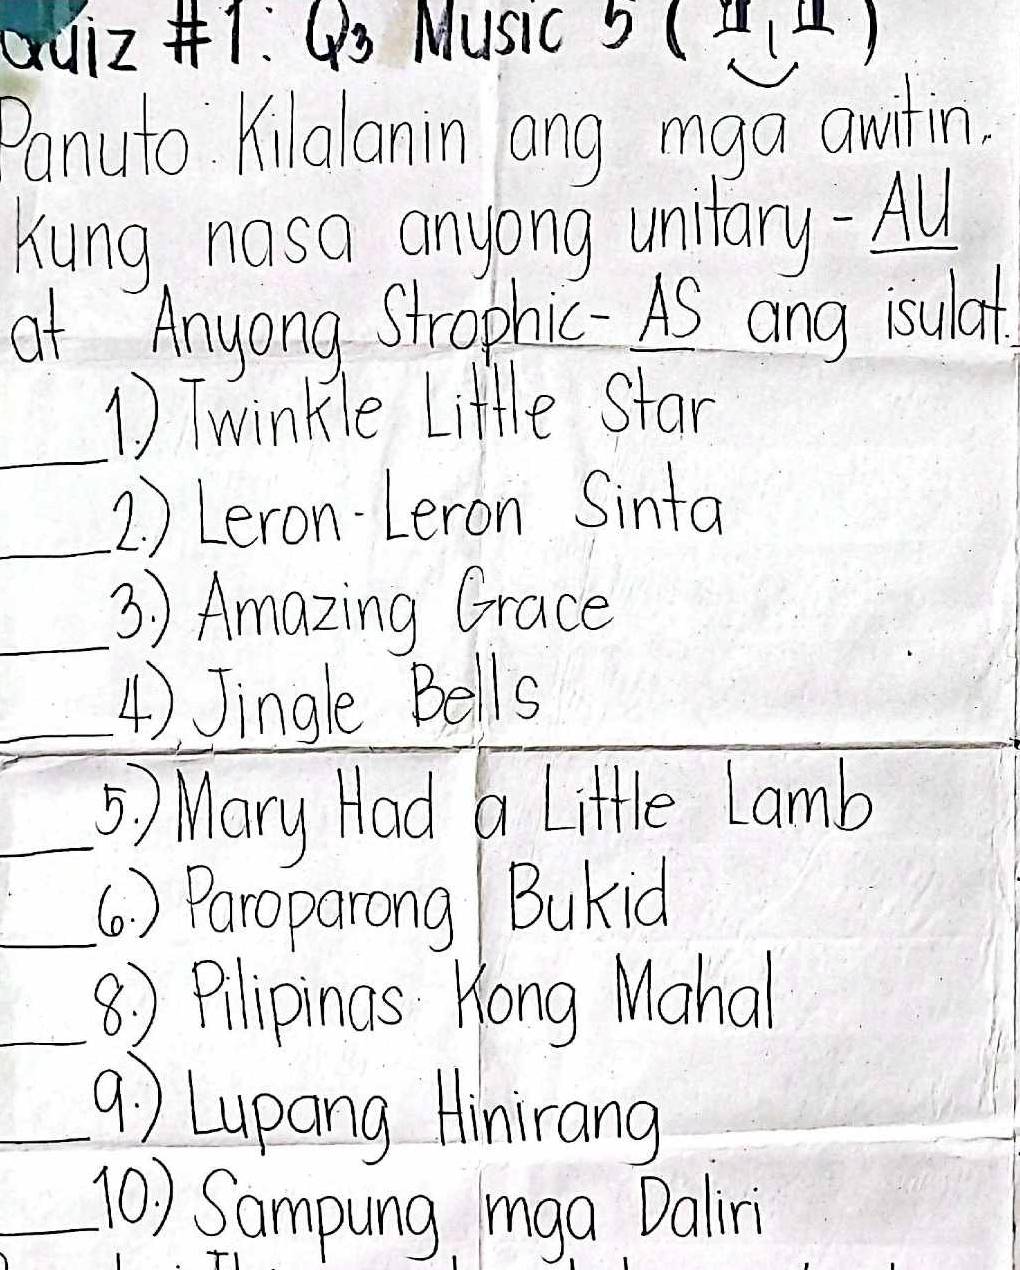 Quiz #1: Q3 Music 5 (II, II)
Panuto: Kilalanin ang mga awitin.
Kung nasa anyong unitary - AU
at Anyong Strophic - AS ang isulat.
___1.) Twinkle Little Star
___2.) Leron-Leron Sinta
___3.) Amazing Grace
___4.) Jingle Bells
___5.) Mary Had a Little Lamb
___6.) Paroparong Bukid
___8.) Pilipinas Kong Mahal
___9.) Lupang Hinirang
___10.) Sampung mga Daliri